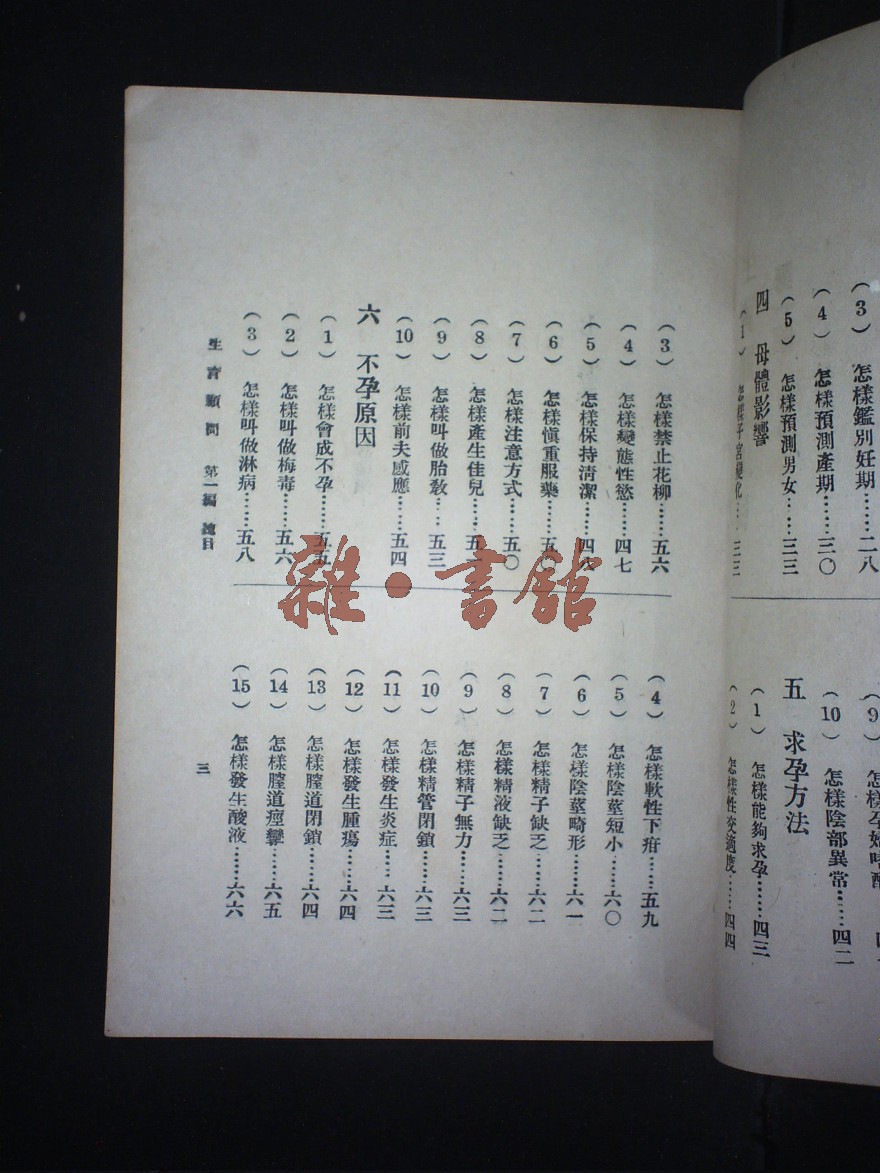 (3) 怎樣鑑別妊期……二八
(4) 怎樣預測產期……三〇
(5) 怎樣預測男女……三三
四 母體影響
(1) 怎樣子宮變化……三三
(9) 怎樣孕婦
(10) 怎樣陰部異常……四二
五 求孕方法
(1) 怎樣能夠求孕……四三
(2) 怎樣性交適度……四四
(3) 怎樣禁止花柳……五六
(4) 怎樣變態性慾……四七
(5) 怎樣保持清潔……四
(6) 怎樣愼重服藥……五〇
(7) 怎樣注意方式……五〇
(8) 怎樣產生佳兒……五
(9) 怎樣叫做胎敎……五三
(10) 怎樣前夫感應……五四
六 不孕原因
(1) 怎樣會成不孕……五五
(2) 怎樣叫做梅毒……五六
(3) 怎樣叫做淋病……五八
(4) 怎樣軟性下疳……五九
(5) 怎樣陰莖短小……六〇
(6) 怎樣陰莖畸形……六一
(7) 怎樣精子缺乏……六二
(8) 怎樣精液缺乏……六二
(9) 怎樣精子無力……六三
(10) 怎樣精管閉鎖……六三
(11) 怎樣發生炎症……六三
(12) 怎樣發生腫瘍……六四
(13) 怎樣膣道閉鎖……六四
(14) 怎樣膣道痙攣……六五
(15) 怎樣發生酸液……六六
生育顧問 第一編 總目
三
雜·書館